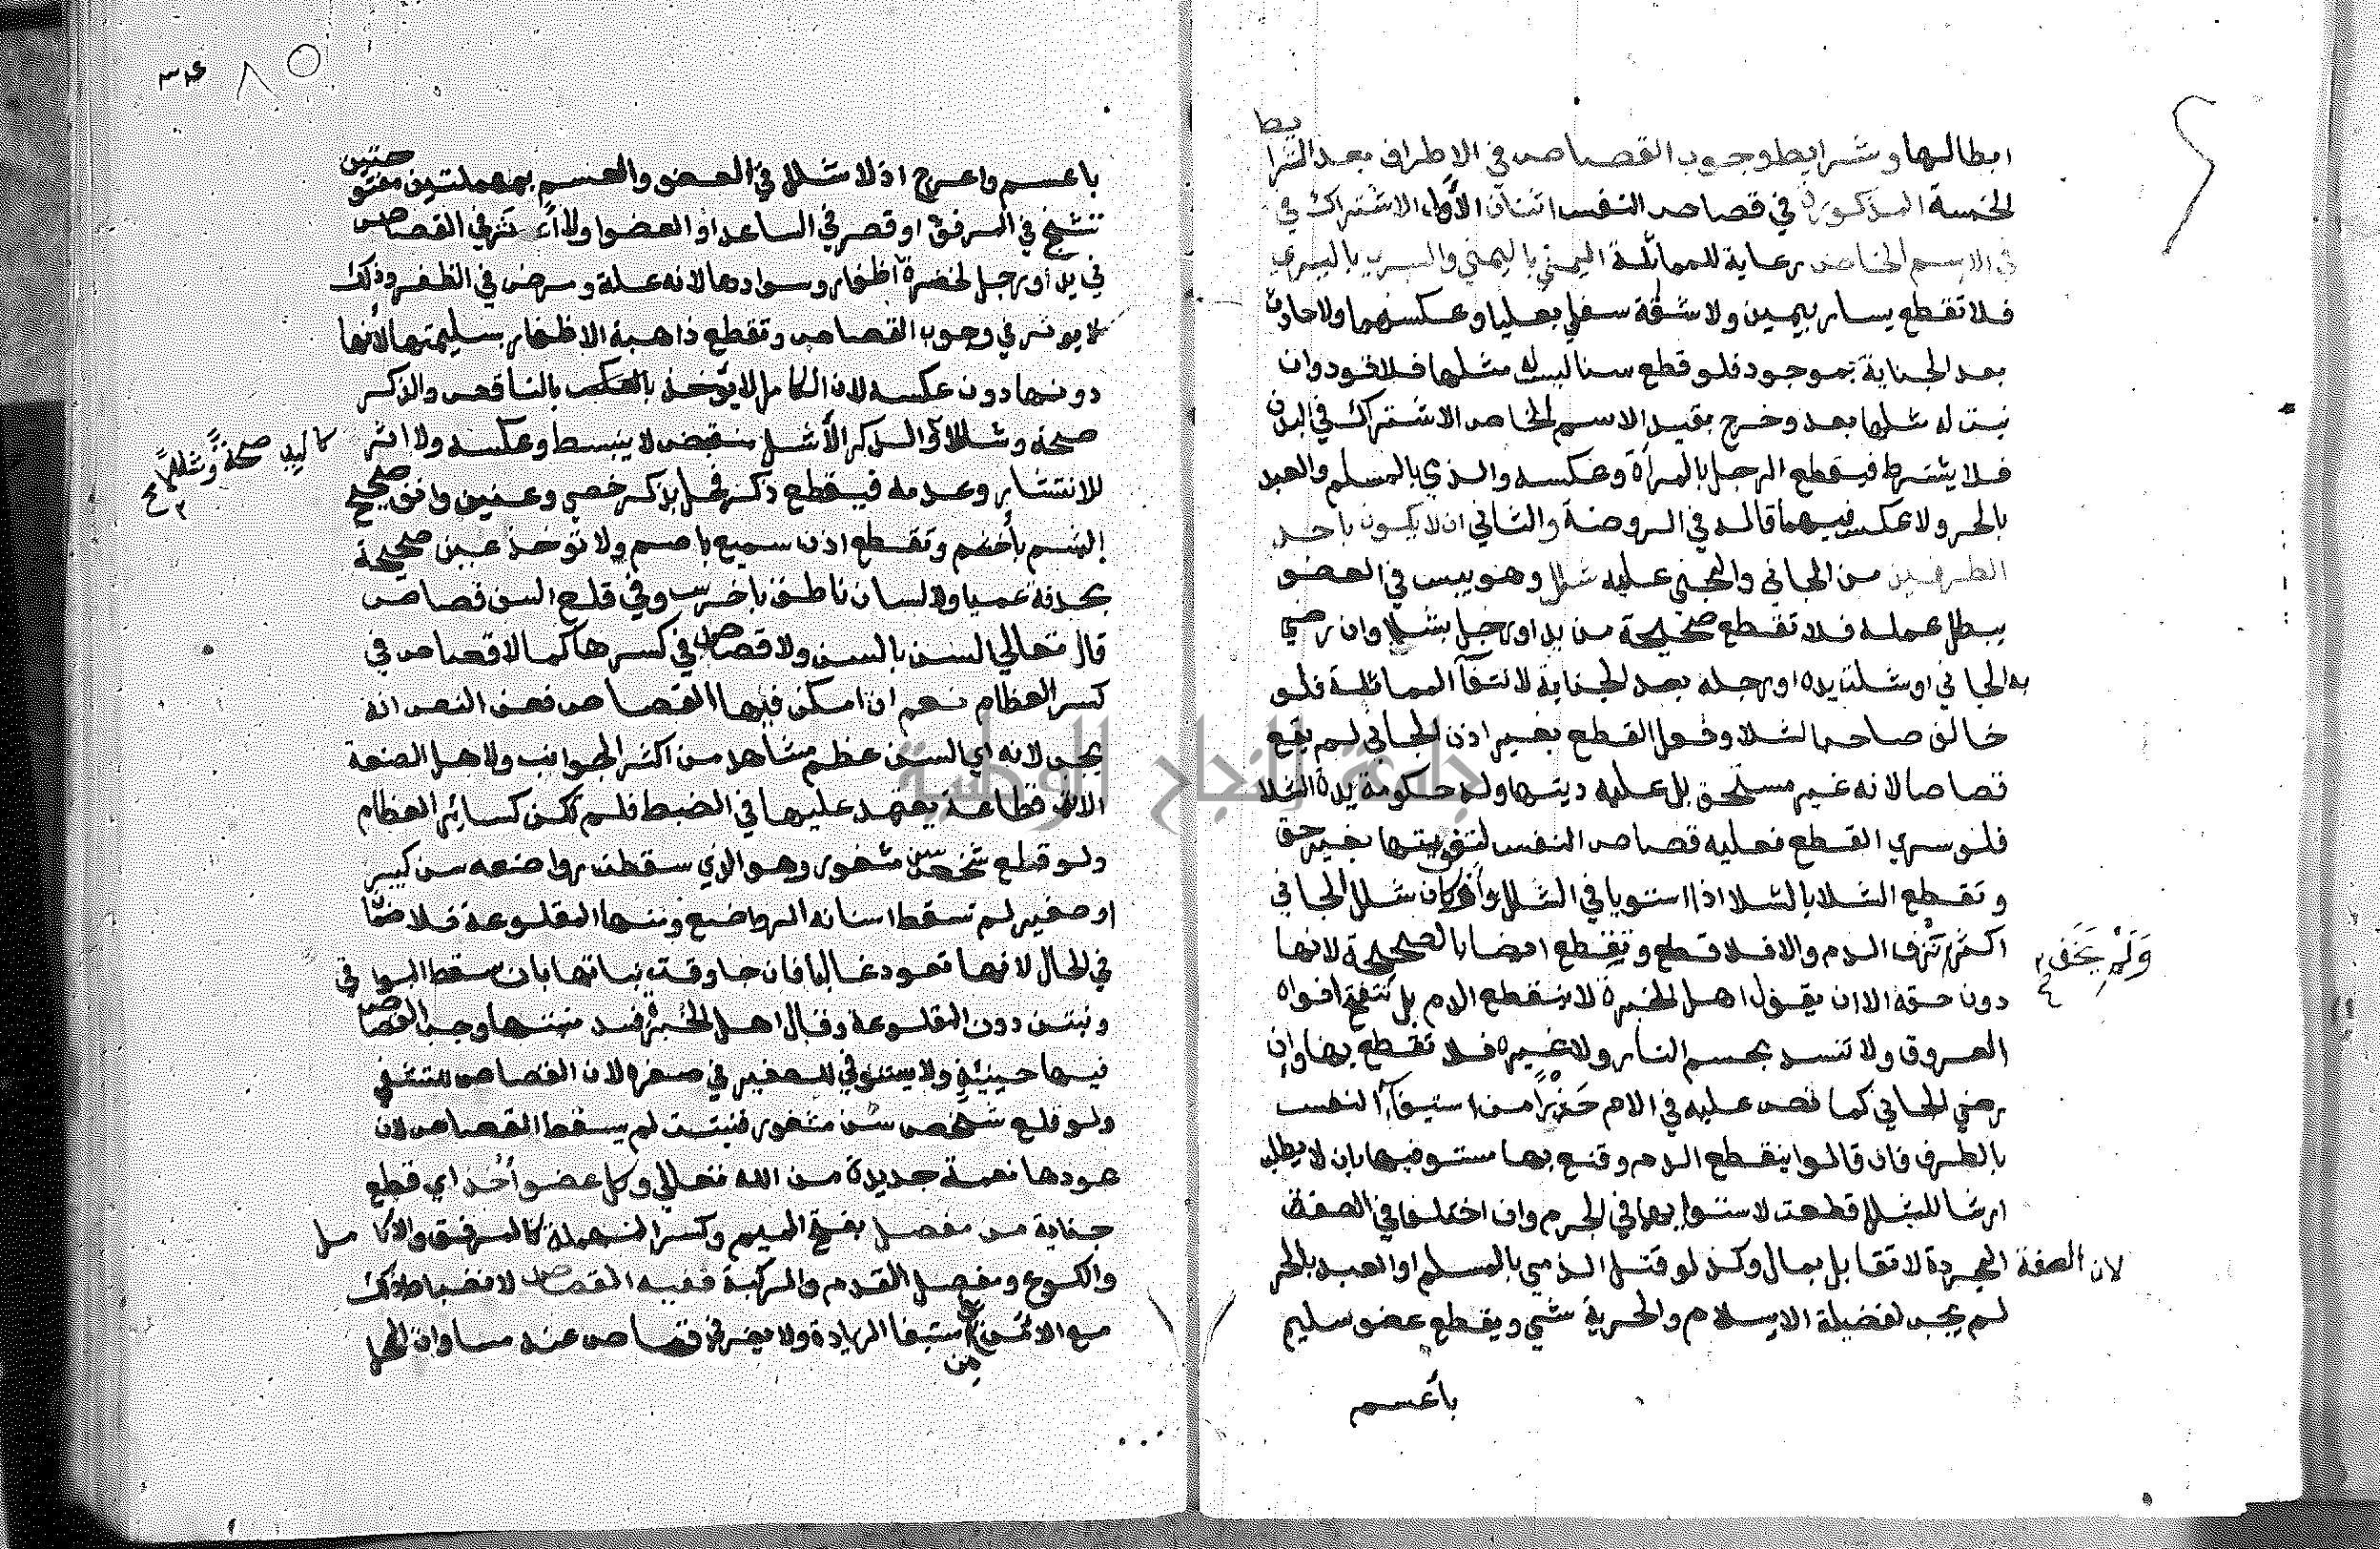 ابطالها وشرايط وجوب القصاص في الاطراف بعد الشرايط
الخمسة المذكورة في قصاص النفس اثنان الأول الاشتراك في
في الاسم الخاص رعاية للمماثلة اليمني باليمني واليسري باليسري
فلا تقطع يسار بيمين ولا شفة سفلي بعليا وعكسهما ولا حادث
بعد الجناية بموجود فلو قطع سنا ليس له مثلها فلا قود وان
نبت له مثلها بعد وخرج بقيد الاسم الخاص الاشتراك في البدن
فلا يشترط فيقطع الرجل بالمرأة وعكسه والذمي بالمسلم والعبد
بالحر ولا عكس فيهما قاله في الروضة والثاني ان لا يكون باحد
الطرفين من الجاني والمجني عليه شلل وهو يبس في العضو
يبطل عمله فلا تقطع صحيحة من يد او رجل بشلا وان رضي
به الجاني او شلت يده او رجله بعد الجناية لانتفآ المماثلة فلو
خالف صاحب الشلا وفعل القطع بغير اذن الجاني لم يقع
قصاصا لانه غير مستحق بل عليه ديتها وله حكومة يده الشلا
فلو سري القطع فعليه قصاص النفس لتفويتها بغير حق
وتقطع الشلا بالشلا اذا استويا في الشلل وأو كان شلل الجاني
اكثر نزف الدم والا فلا قطع وتقطع ايضا بالصحيحة لانها
ولم يخف
دون حقه الا ان يقول اهل الخبرة لا ينقطع الدم بل تنفتح افواه
العروق ولا تنسد بحسم النار ولا غيره فلا تقطع بها وان
رضي الجاني كما نص عليه في الام حذرا من استيفآ النفس
بالطرف فان قالوا ينقطع الدم وقنع بها مستوفيها بان لا يطلب
ارشا للشلل قطعت لاستوايهما في الجرم وان اختلفا في الصفة
لان الصفة المجردة لا تقابل بمال وكذا لو قتل الذمي بالمسلم او العبد بالحر
لم يجب لفضيلة الاسلام والحرية شي ويقطع عضو سليم
باعسم
٨٥
باعسم واعرج اذ لا شلل في العضو والعسم بمهملتين مفتوحتين
تشنج في المرفق او قصر في الساعد او العضد ولا أثر في القصاص
في يد او رجل لخضرة اظفار وسوادها لانه علة ومرض في الظفر وذلك
لا يوثر في وجوب القصاص وتقطع ذاهبة الاظفار بسليمتها لأنها
دونها دون عكسه لان الكامل لا يؤخذ بالناقص والذكر
صحة وشللا والذكر الأشل منقبض لا ينبسط وعكسه ولا اثر
كاليد صحةً وشللاً صح
للانتشار وعدمه فيقطع ذكر فحل بذكر خصي وعنين وانف صحيح
الشم بأخشم وتقطع اذن سميع باصم ولا توخذ عين صحيحة
بحدقة عميا ولا لسان ناطق باخرس وفي قلع السن قصاص
قال تعالي السن بالسن ولا قصاص في كسرها كما لا قصاص في
كسر العظام نعم ان امكن فيها القصاص فعن النص انه
يجب لانه اي السن عظم مشاهد من اكثر الجوانب ولاهل الصنعة
الات قطاعة يعتمد عليها في الضبط فلم تكن كسائر العظام
ولو قطع شخص سن مثغور وهو الذي سقطت رواضعه سن كبير
او صغير لم تسقط اسنانه الرواضع ومنها المقلوعة فلا ضمان
في الحال لانها تعود غالبا فان جا وقت نباتها بان سقط البواقي
ونبتن دون المقلوعة وقال اهل الخبرة فسد منبتها وجب القصاص
فيها حينيذ ولا يستوفي للصغير في صغره لان القصاص للتشفي
ولو قلع شخص سن مثغور فنبتت لم يسقط القصاص لان
عودها نعمة جديدة من الله تعالي وكل عضو أُخذ اي قطع
جناية من مفصل بفتح الميم وكسر المهملة كالمرفق والانامل
والكوع ومفصل القدم والركبة ففيه القصاص لانضباط ذلك
مع الامن من استيفا الزيادة ولا يضر في قصاص عند مساواة المحل
جامعة النجاح الوطنية